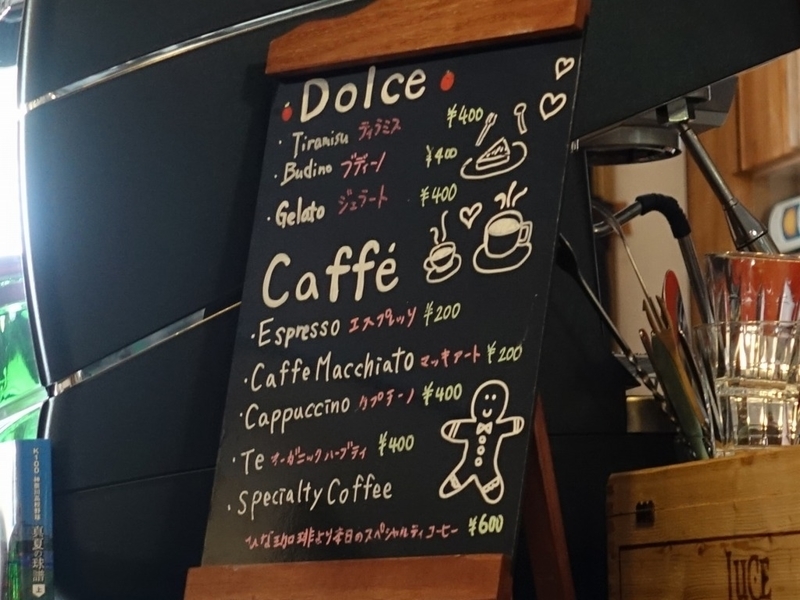 Dolce
・Tiramisu ティラミス ¥400
・Budino ブディーノ ¥400
・Gelato ジェラート ¥400
Caffé
・Espresso エスプレッソ ¥200
・Caffe Macchiato マッキアート ¥200
・Cappuccino カプチーノ ¥400
・Te オーガニックハーブティ ¥400
・Specialty Coffee
ひな珈琲より本日のスペシャルティコーヒー ¥600
K100 神奈川高校野球
真夏の球譜 上
LUCE